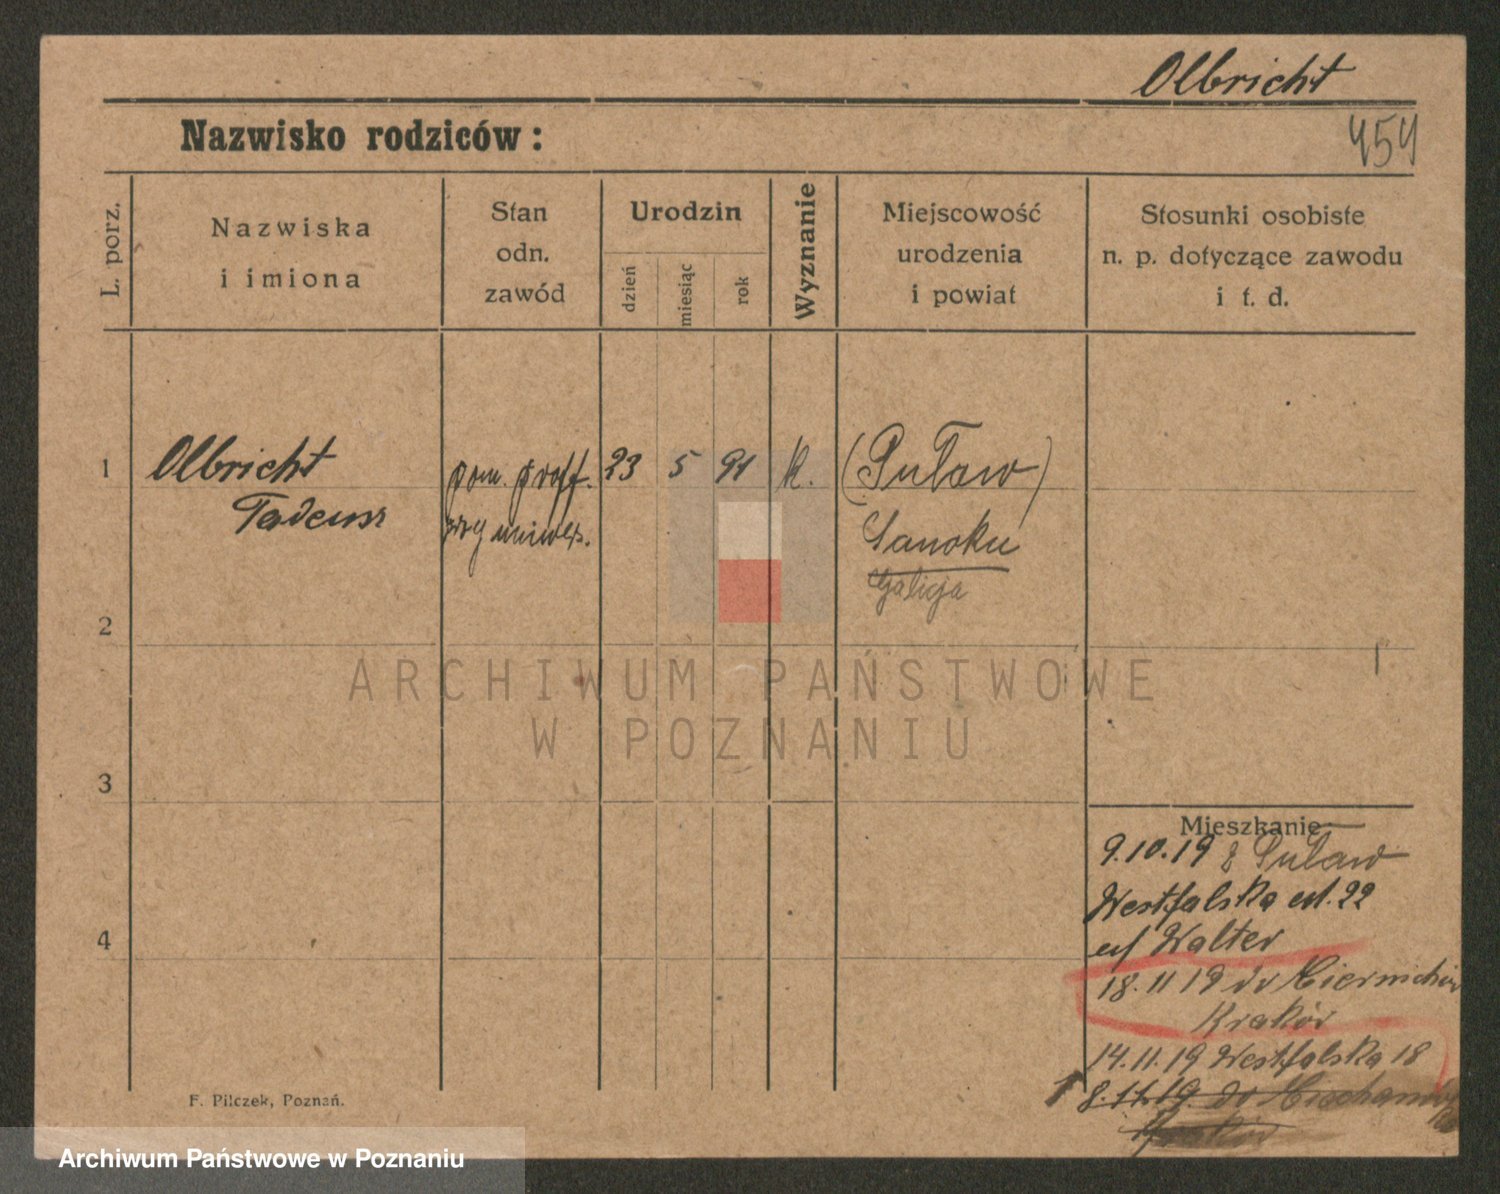 Olbricht
Nazwisko rodziców:
454
L. porz.
Nazwiska
i imiona
Stan
odn.
zawód
Urodzin
dzień
miesiąc
rok
Wyznanie
Miejscowość
urodzenia
i powiat
Stosunki osobiste
n. p. dotyczące zawodu
i t. d.
1
Olbricht
Tadeusz
pom. proff.
przy uniwers.
23
5
91
k.
(Puław)
Sanoku
Galicja
2
ARCHIWUM PAŃSTWOWE
W POZNANIU
3
Mieszkanie
9.10.19 z Puław
Westfalska 22
Walter
4
18.11 19 do
Kraków
14.11.19 Westfalska 18
8.11.19 do
Kraków
F. Pilczek, Poznań.
Archiwum Państwowe w Poznaniu